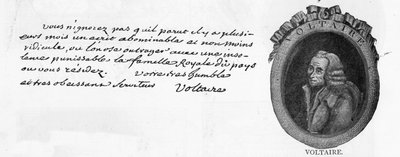 vous n'ignorez pas qu'il parut il y a plusi-
eurs mois un ecrit abominable et non moins
ridicule, ou l'on ose outrager avec une inso-
lence punissable la famille Royale du pays
ou vous résidez. Votre tres humble
et tres obeissant Serviteur Voltaire
VOLTAIRE
VOLTAIRE.